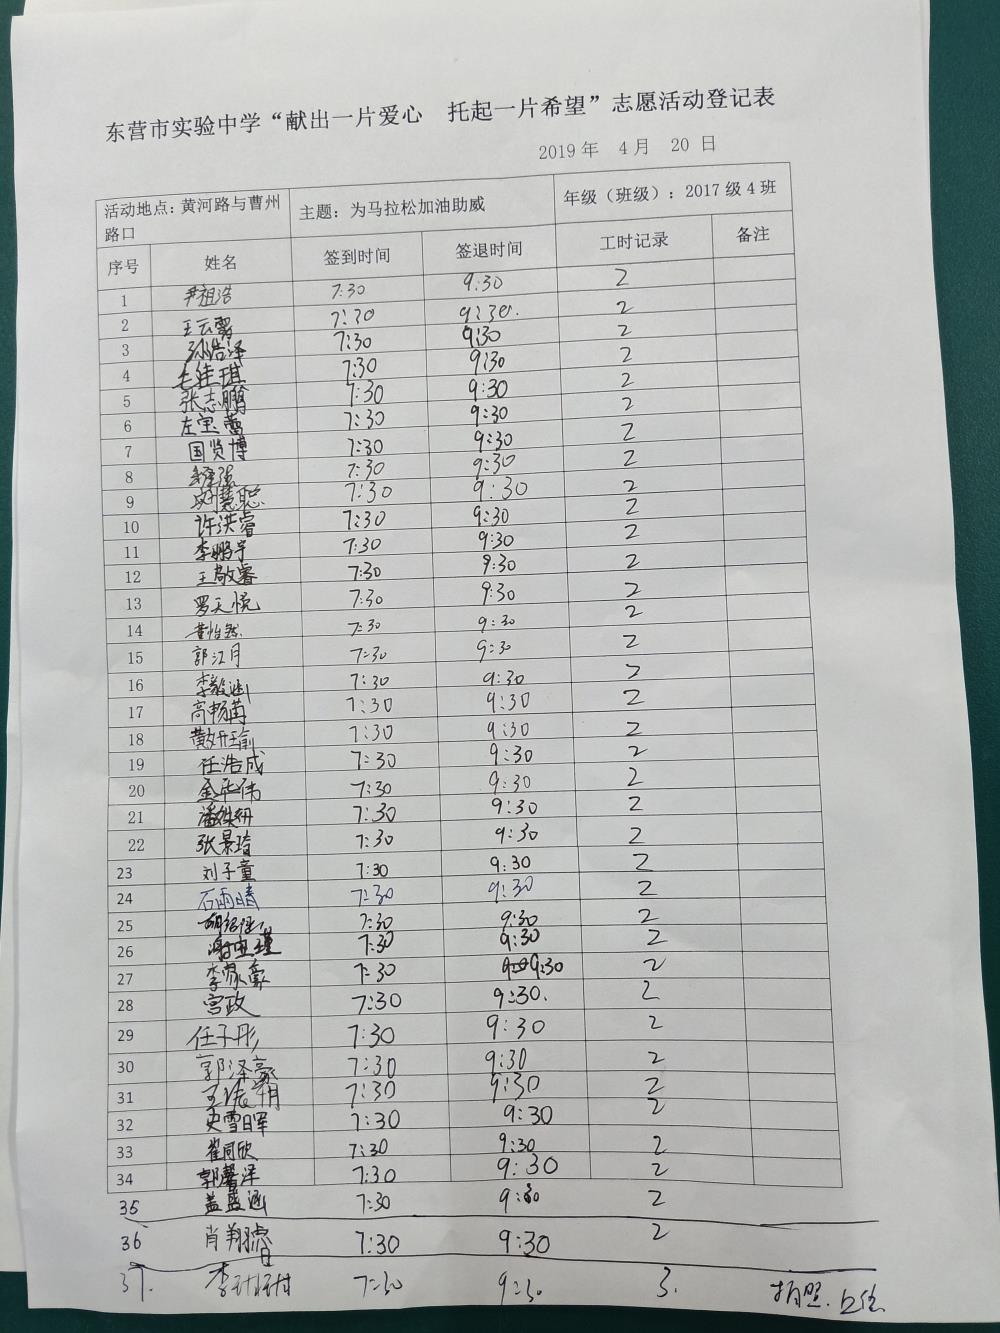 东营市实验中学“献出一片爱心 托起一片希望”志愿活动登记表
2019年 4月 20日
活动地点：黄河路与曹州路口 主题：为马拉松加油助威 年级（班级）：2017级4班
序号 姓名 签到时间 签退时间 工时记录 备注
1 尹祖浩 7:30 9:30 2
2 王云霄 7:30 9:30. 2
3 孙浩泽 7:30 9:30 2
4 毛佳琪 7:30 9:30 2
5 张志鹏 7:30 9:30 2
6 左宝蕾 7:30 9:30 2
7 国贤博 7:30 9:30 2
8 7:30 9:30 2
9 慧聪 7:30 9:30 2
10 许洪睿 7:30 9:30 2
11 李鹏宇 7:30 9:30 2
12 王敬睿 7:30 9:30 2
13 罗天悦 7:30 9:30 2
14 黄怡然 7:30 9:30 2
15 郭江月 7:30 9:30 2
16 李毅涵 7:30 9:30 2
17 高畅苒 7:30 9:30 2
18 7:30 9:30 2
19 任浩成 7:30 9:30 2
20 金华伟 7:30 9:30 2
21 潘姝妍 7:30 9:30 2
22 张景琦 7:30 9:30 2
23 刘子童 7:30 9:30 2
24 石雨晴 7:30 9:30 2
25 7:30 9:30 2
26 7:30 9:30 2
27 李家豪 7:30 9:30 2
28 宫政 7:30 9:30. 2
29 任子彤 7:30 9:30 2
30 郭泽豪 7:30 9:30 2
31 7:30 9:30 2
32 史雪晖 7:30 9:30 2
33 崔同欣 7:30 9:30 2
34 郭馨泽 7:30 9:30 2
35 盖盛涵 7:30 9:30 2
36 肖翔 7:30 9:30 2
37. 李 7:30 9:30 3. 拍照.